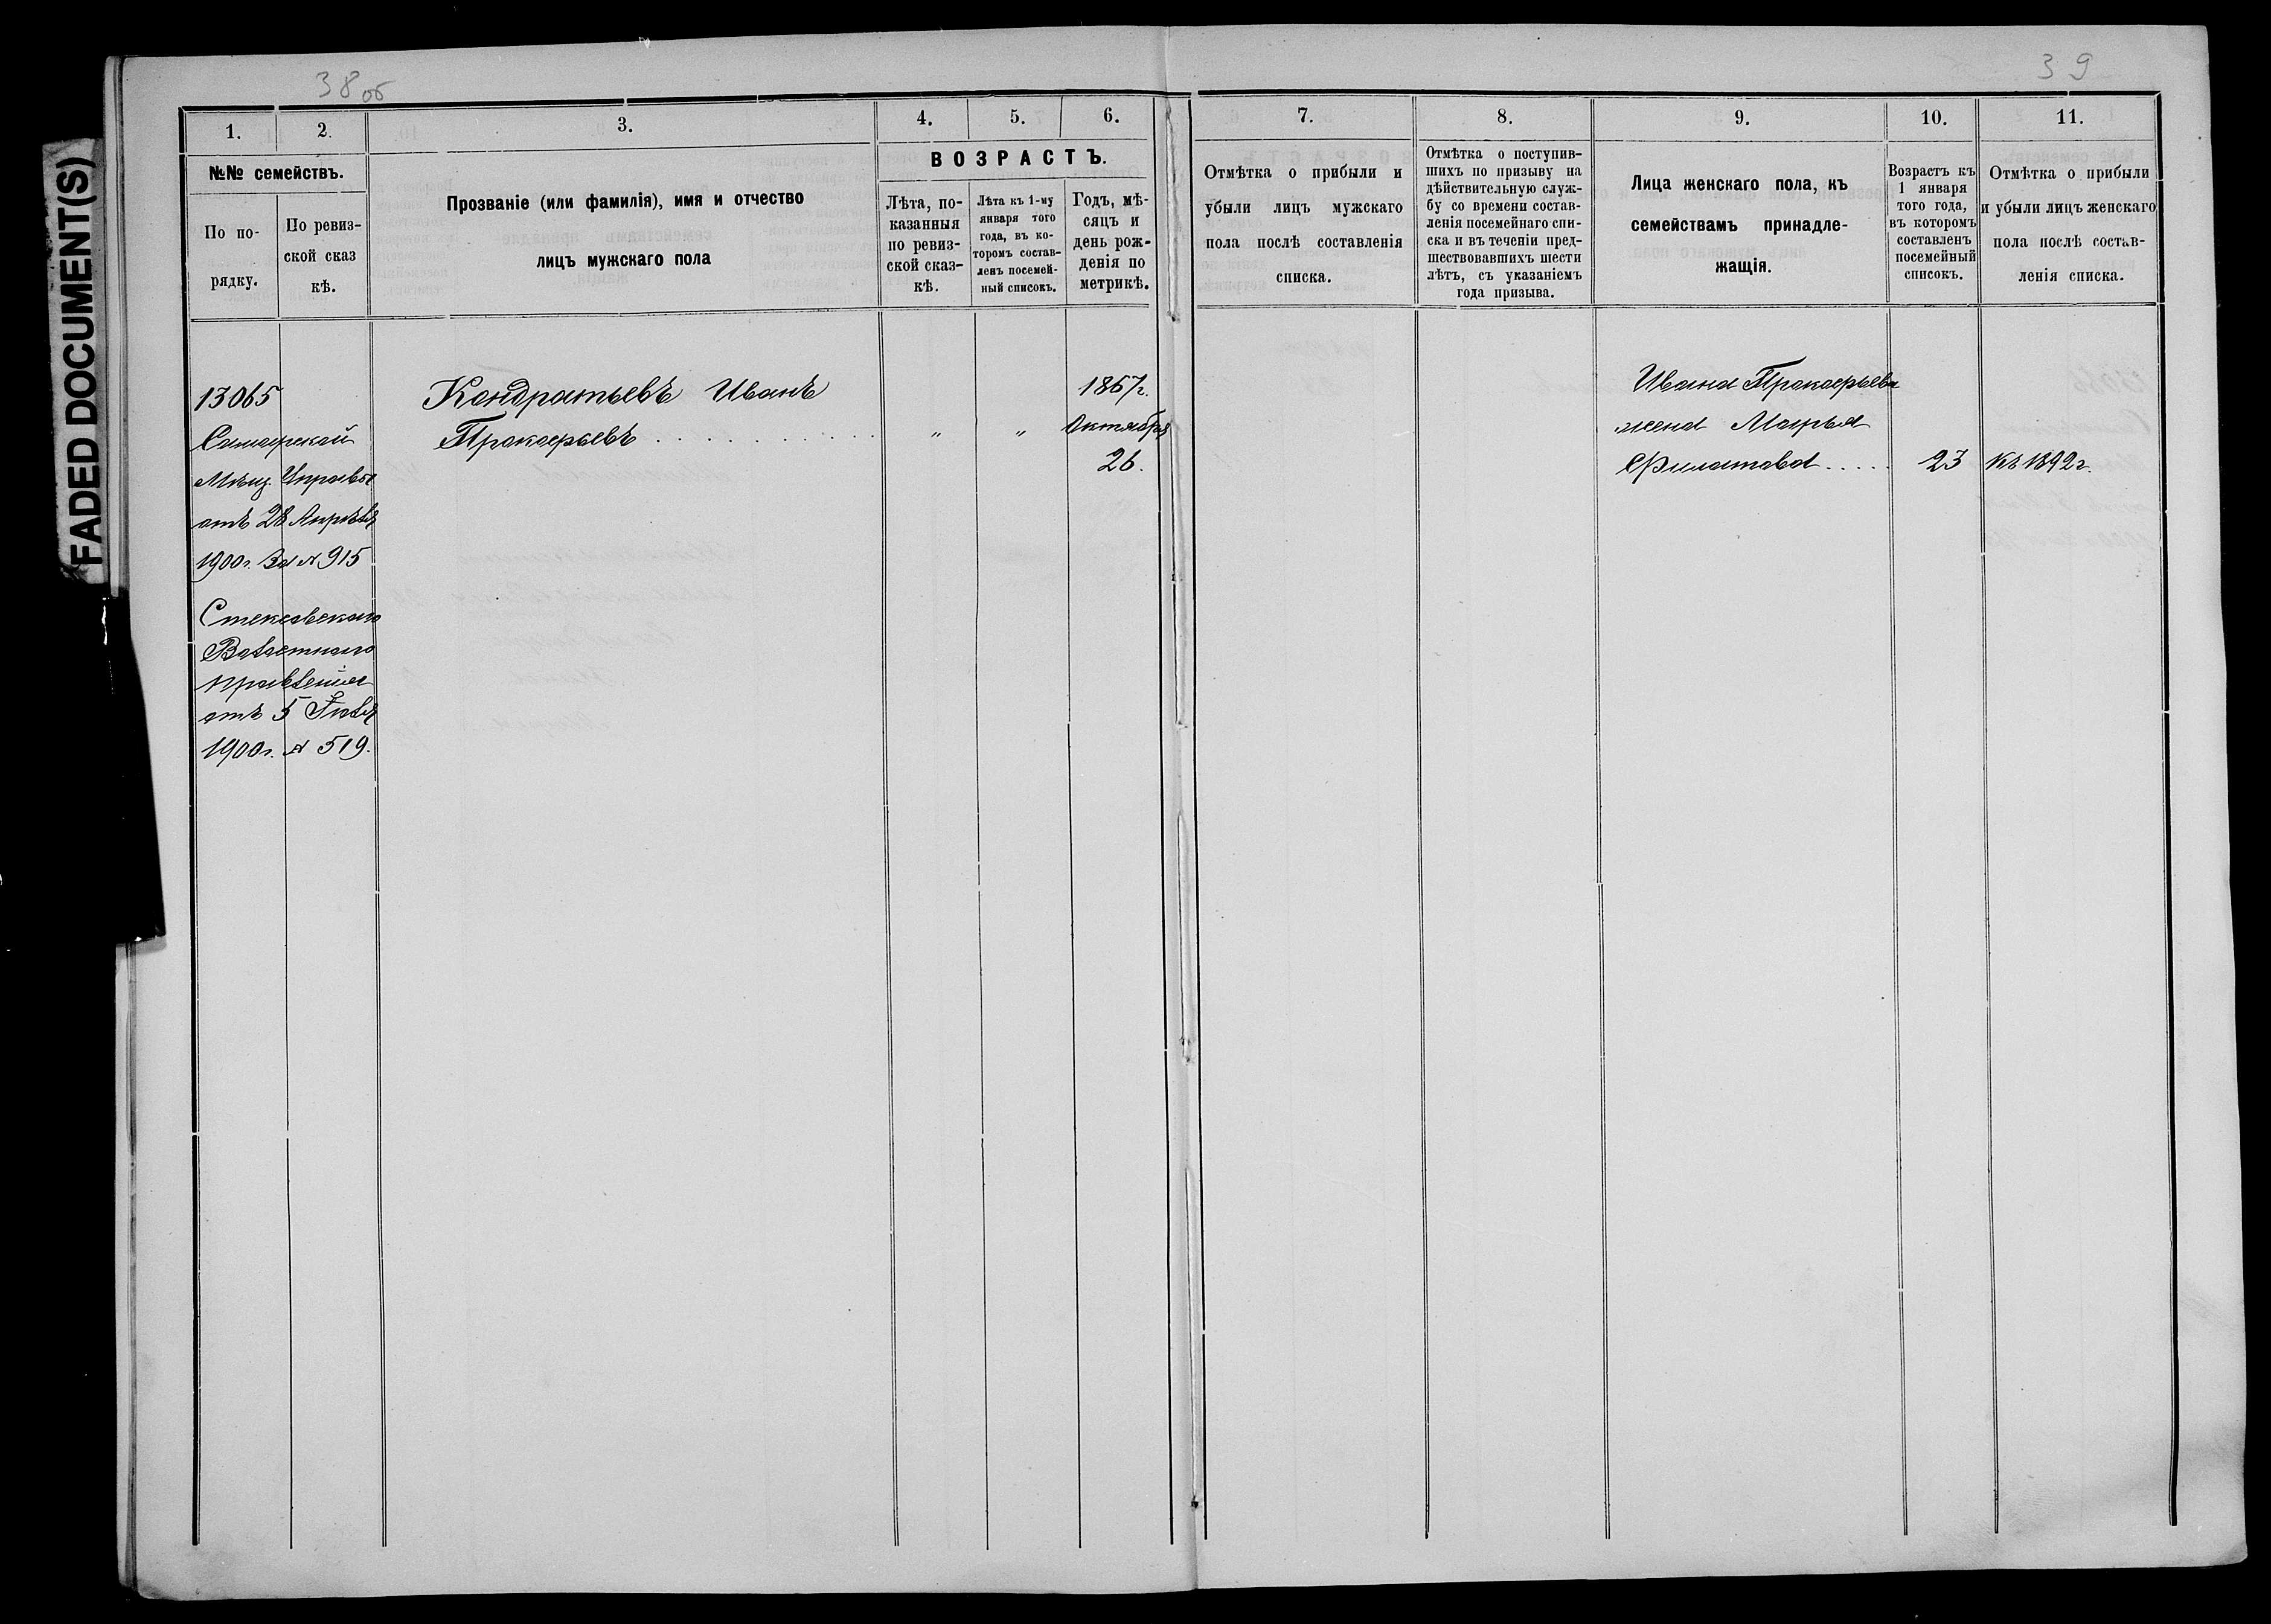 FADED DOCUMENT(S)
38 об
39
1.
2.
3.
4.
5.
6.
7.
8.
9.
10.
11.
№№ семействъ.
По по-
рядку.
По ревиз-
ской сказ
кѣ.
Прозваніе (или фамилія), имя и отчество
лицъ мужскаго пола
ВОЗРАСТЪ.
Лѣта, по-
казанныя
по ревиз-
ской сказ-
кѣ.
Лѣта къ 1-му
января того
года, въ ко-
торомъ состав-
ленъ посемей-
ный списокъ.
Годъ, мѣ-
сяцъ и
день рож-
денія по
метрикѣ.
Отмѣтка о прибыли и
убыли лицъ мужскаго
пола послѣ составленія
списка.
Отмѣтка о поступив-
шихъ по призыву на
дѣйствительную служ-
бу со времени состав-
ленія посемейнаго спи-
ска и въ теченіи пред-
шествовавшихъ шести
лѣтъ, съ указаніемъ
года призыва.
Лица женскаго пола, къ
семействамъ принадле-
жащія.
Возрастъ къ
1 января
того года,
въ которомъ
составленъ
посемейный
списокъ.
Отмѣтка о прибыли
и убыли лицъ женскаго
пола послѣ состав-
ленія списка.
13065
Самарской
Мѣщ. Управы
отъ 28 Апрѣля
1900г. За № 915
Стексовскаго
Волостнаго
правленія
отъ 5 Іюля
1900г. № 519.
Кондратьевъ Иванъ
Прокофьевъ . . . . . . . . . . „ „
1867г.
Октября
26.
Ивана Прокофьева
жена Марья
Филатова . . . . . 23 къ 1892г.